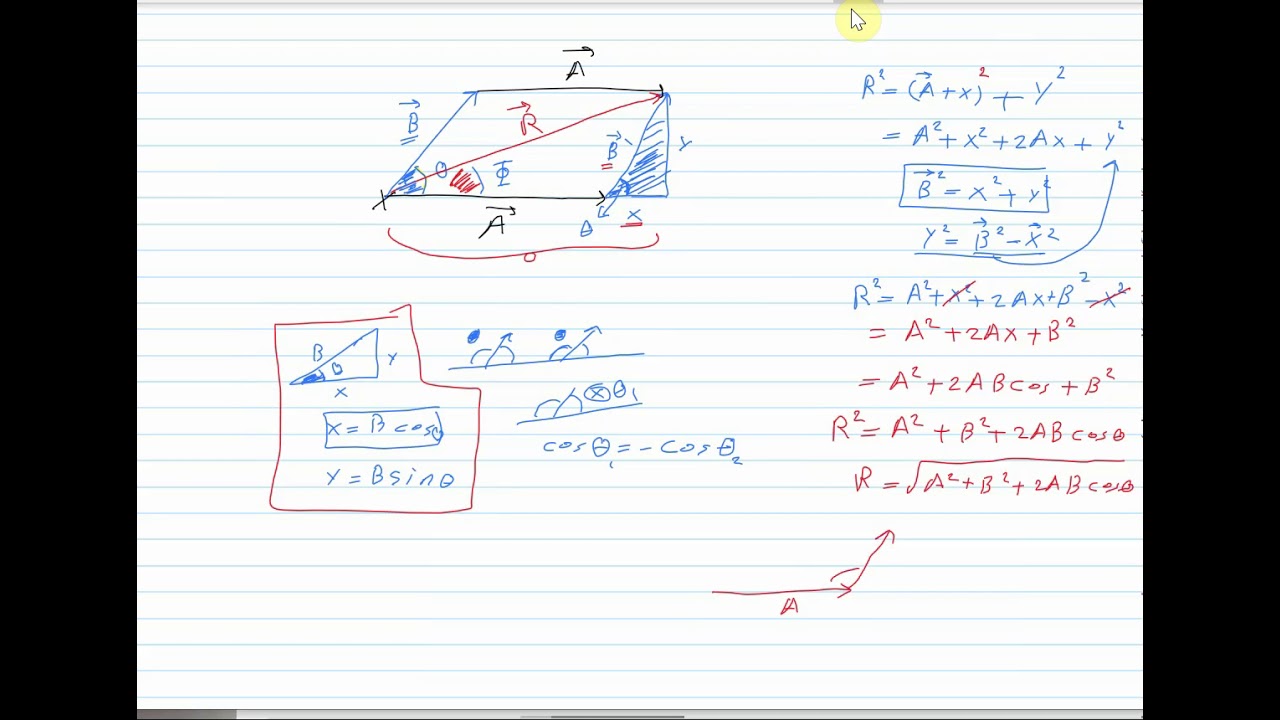 A⃗
B⃗
R⃗
θ
Φ
B⃗
Y
A⃗
θ
x
R² = (A⃗+x)² + Y²
= A² + x² + 2Ax + y²
B⃗² = x² + y²
Y² = B⃗² − X⃗²
R² = A² + x² + 2Ax + B² − x²
= A² + 2Ax + B²
= A² + 2AB cos + B²
R² = A² + B² + 2AB cosθ
R = √A² + B² + 2AB cosθ
B
θ
Y
X
x = B cosθ
Y = B sinθ
x θ₁
cosθ₁ = − cosθ₂
A